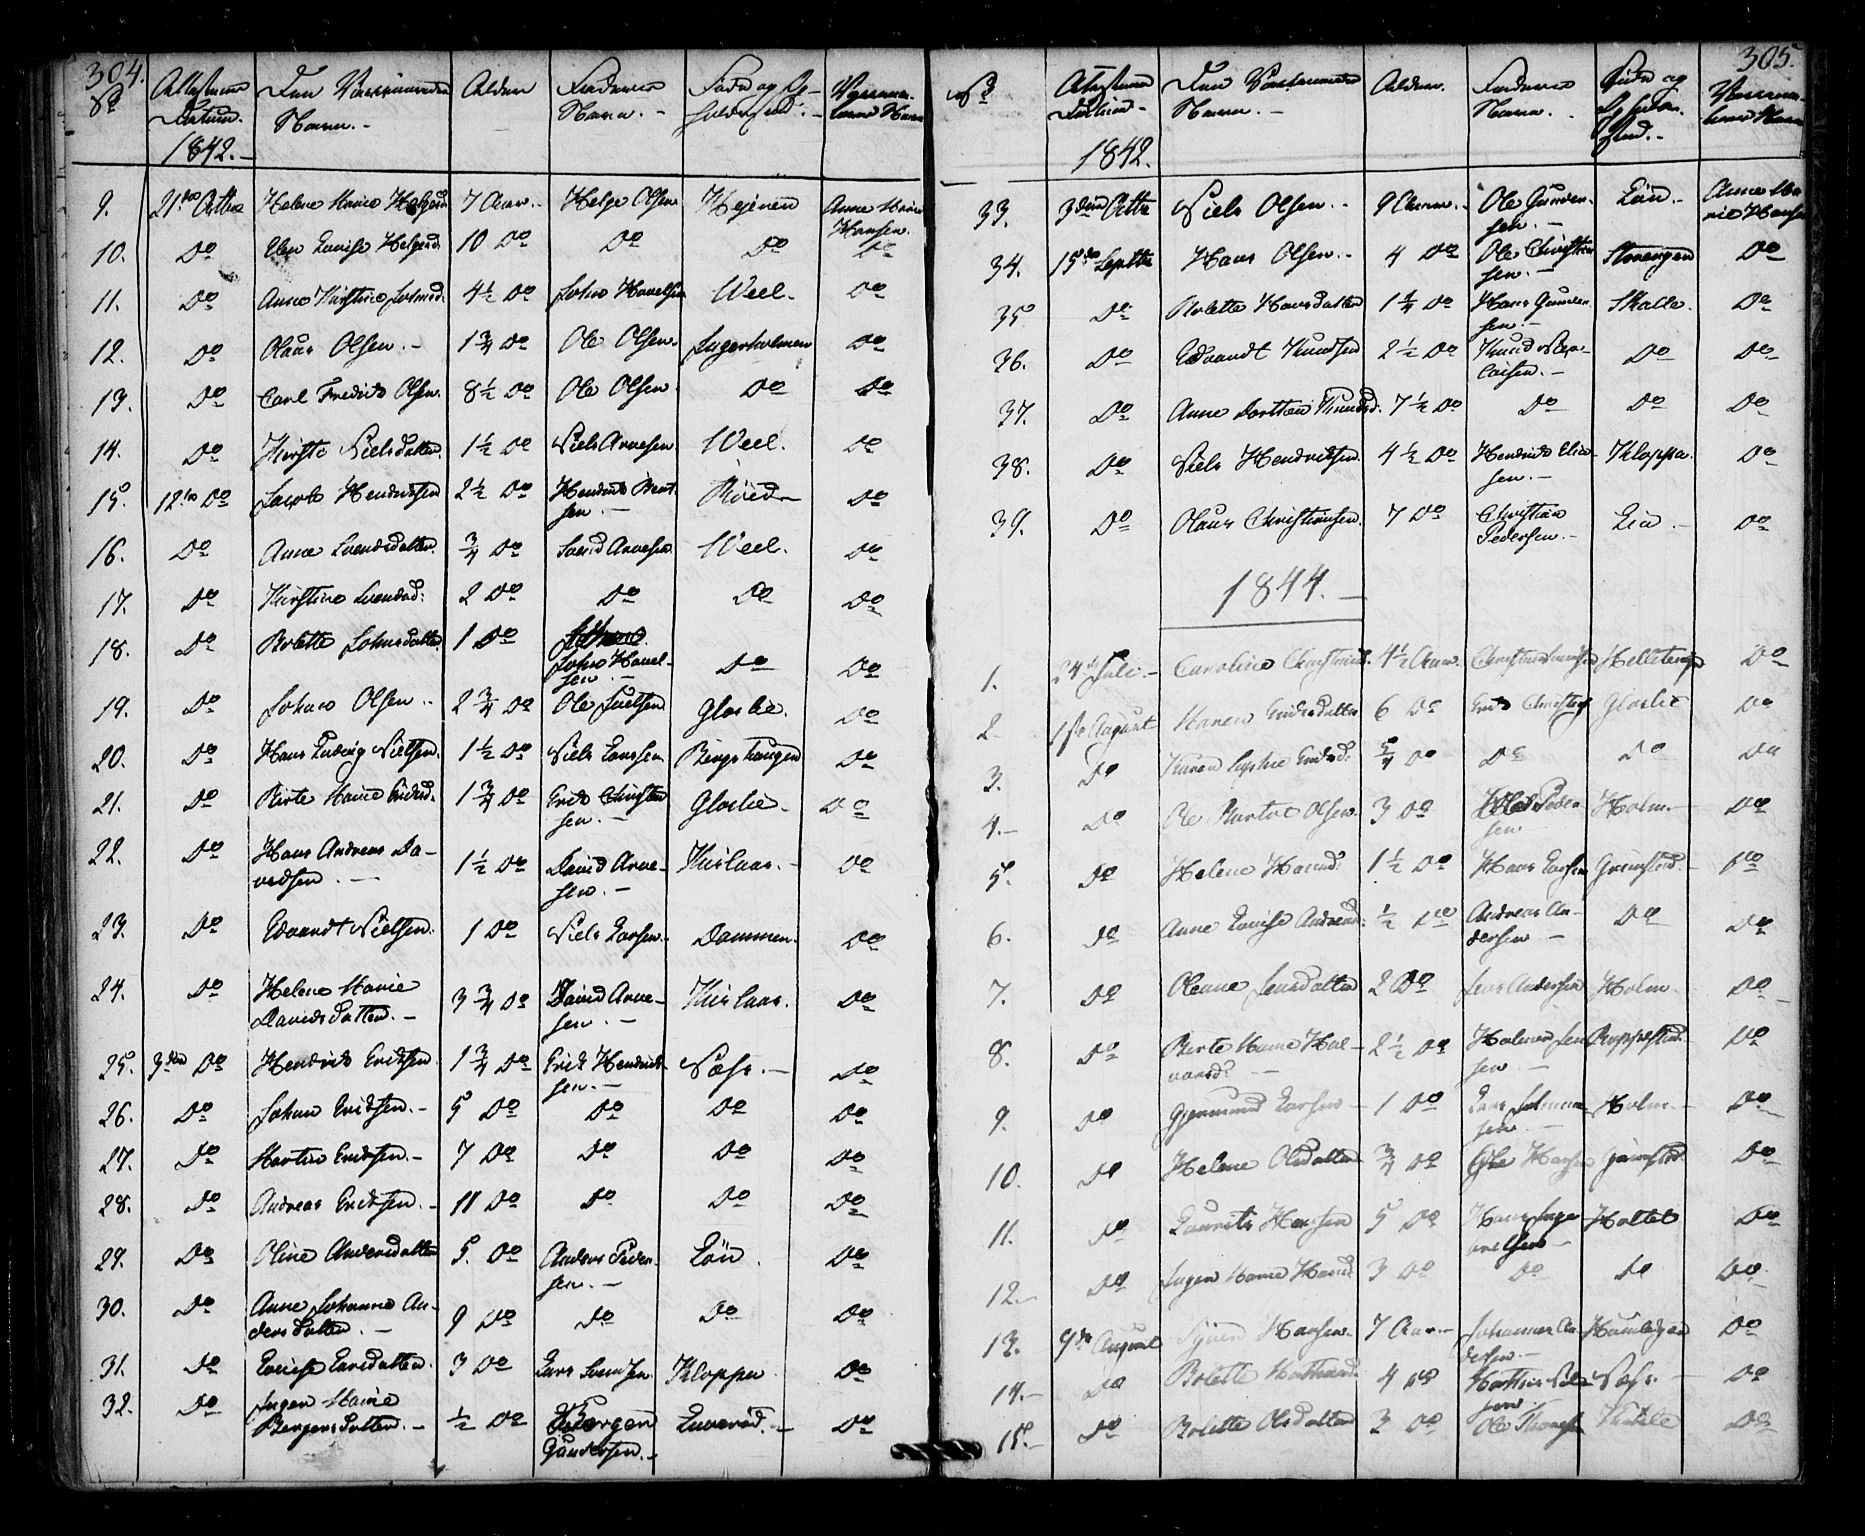 304.
No | Attestens Datum. 1842. | Den Vaccineredes Navn. | Alder | Faderens Navn. | Føde og Opholdssted. | Vaccinateurens Navn
9. 21de Octbr Helene Marie Helgesd. 7 Aar. Helge Olsen Hejenen Anne Marie Hansen.
10. Do Elen Lovise Helgesd. 10 Do Do Do Do
11. Do Anne Kirstine Johnsd. 4½ Do John Havelsen Weel. Do
12. Do Olaus Olsen. 1¾ Do Ole Olsen. Ingerholmen Do
13. Do Carl Fredrik Olsen. 8½ Do Ole Olsen. Do Do
14. Do Kirste Nielsdatter. 1½ Do Niels Arvesen Weel. Do
15. 12te Do Jacob Hendriksen 2½ Do Hendrik Bentsen. Röed Do
16. Do Anne Svendsdatter. ¾ Do Svend Arvesen Weel. Do
17. Do Kirstine Svendsd: 2 Do Do Do Do
18. Do Bolette Johnsdatter 1 Do John Havelsen. Do Do
19. Do Johan Olsen. 2¾ Do Ole Juelsen Gloslie. Do
20. Do Hans Ludvig Nielsen. 1½ Do Niels Larssen Bingshaugen Do
21. Do Birte Marie Eriksd. 1¾ Do Erik Christensen. Gloslie. Do
22. Do Hans Andreas Davidsen. 1½ Do David Arvesen. Kirlaar. Do
23. Do Edvardt Nielsen. 1 Do Niels Larsen. Dammen. Do
24. Do Helene Marie Davidsdatter. 3¾ Do David Arvesen. Kirlaar. Do
25. 3die Do Hendrik Eriksen. 1¾ Do Erik Hendriksen. Næs. Do
26. Do Johan Eriksen. 5 Do Do Do Do
27. Do Martin Eriksen. 7 Do Do Do Do
28. Do Andreas Eriksen. 11 Do Do Do Do
29. Do Oline Andersdatter 5. Do Anders Pedersen. Lön. Do
30. Do Anne Johanne Andersdatter. 9 Do Do Do Do
31. Do Lovise Larsdatter. 3 Do Lars Svendsen Kloppen Do
32. Do Ingen Marie Bergersdatter. ½ Do Berger Gundersen. Do
305.
No | Attestens Datum. 1842. | Den Vaccineredes Navn. | Alder. | Faderens Navn. | Føde og Opholdssted. | Vaccinateurens Navn
33. 3die Octbr Niels Olsen. 9 Aar. Ole Gundersen. Lön. Anne Marie Hansen
34. 15de Septbr Hans Olsen. 4 Do Ole Christensen. Strengen Do
35. Do Bolette Hansdatter 1¼ Do Hans Gundersen. Skalle. Do
36. Do Edvardt Knudsen 2½ Do Knud Nicolaisen. Do Do
37. Do Anne Dorthea Knudsd. 7½ Do Do Do Do
38. Do Niels Hendriksen. 4½ Do Hendrik Eliasen. Kloppa. Do
39. Do Olaus Christiansen. 7 Do Christian Pedersen. Lia. Do
1844.
1. 24de Juli. Caroline Christensd. 4½ Aar. Helletangen Do
2. 1ste August Maren Eriksdatter 6 Do Erik Christens. Gloslie Do
3. Do Karen Sophie Eriksd. 5/4 Do Do Do Do
4. Do Ole Olsen. 3 Do Ole Pedersen Holm. Do
5. Do Helene Hansd: 1½ Do Hans Larsen Grimsted. Do
6. Do Anne Lovise Andreasd: ½ Do Andreas Andersen Do Do
7. Do Oleane Jensdatter 2 Do Jens Andersen Holm. Do
8. Do Berte Marie Halvorsd. 2½ Do Halvor Jensen. Do
9. Do Gjermund Larsen 1 Do Lars Johannesen. Holm. Do
10. Do Helene Olsdatter ¾ Do Ole Hansen Grimsted. Do
11. Do Laurits Hansen 5 Do Hans Ingebretsen Holtet Do
12. Do Ingen Marie Hansd. 3 Do Do Do Do
13. 9de August Hansen. 7 Aar. Johannes Andersen. Do
14. Do Bolette Mathiasd. 4 Do Næs. Do
15. Do Bolette Olsdatter 3 Do Ole Do